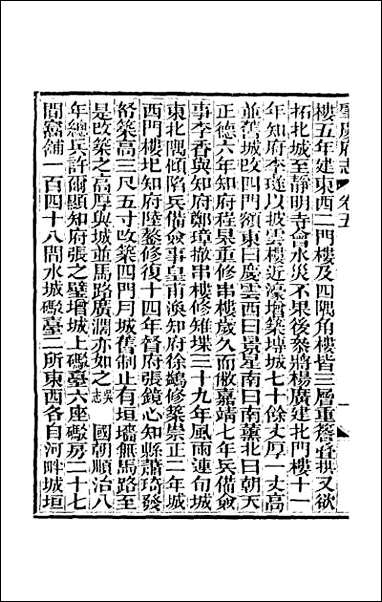 肇慶府志 卷五 一
樓五年建東西二門樓及四隅角樓皆三層重簷疊拱又欲
拓北城至靜明寺會水災不果後參將楊廣建北門樓十一
年知府李璲以披雲樓近濠增築埤城七十餘丈厚一丈高
並舊城改四門額東曰慶雲西曰景星南曰南薰北曰朝天
正德六年知府程杲重修串樓歲久而傲嘉靖七年兵備僉
事李香與知府鄭璋撤串樓修雉堞三十九年風雨連旬城
東北隅傾陷兵備僉事皇甫渙知府徐鷁修築崇正二年城
西門樓圮知府陸鏊修復十四年督府張鏡心知縣蕭琦發
帑築高三尺五寸改築四門月城舊制止有垣墻無馬路至
是改築之高厚與城並馬路廣濶亦如之吳志 國朝順治八
年總兵許爾顯知府張之璧增城上礮臺六座礮房二十七
間窩舖一百四十八間水城礮臺二所東西各自河畔城垣